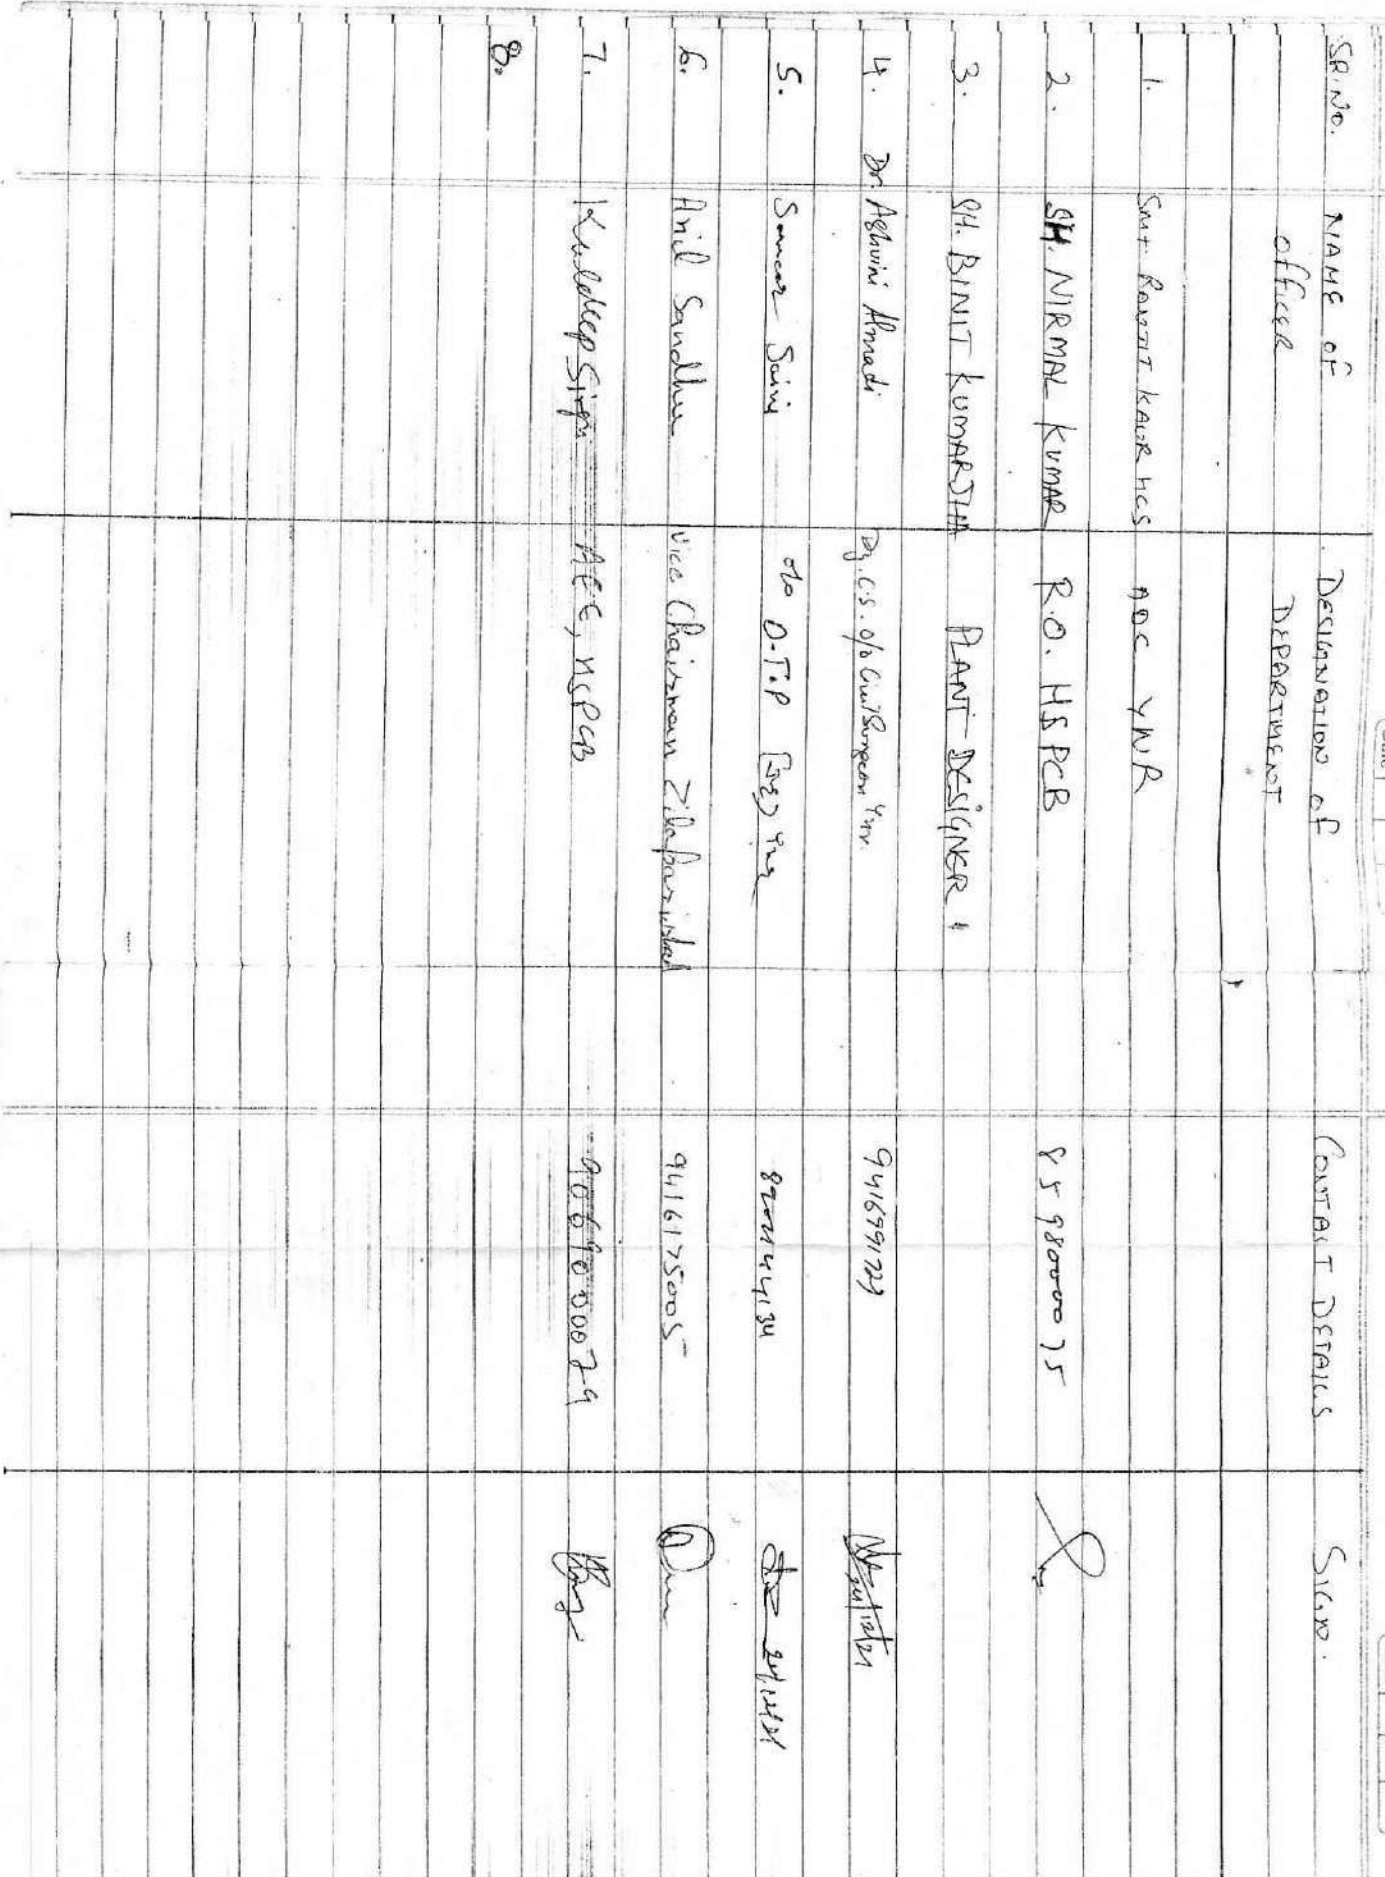 SR. NO. NAME OF OFFICER DESIGNATION OF DEPARTMENT CONTACT DETAILS SIGN.
1. Smt. RANJIT KAUR HCS ADC YNR
2. SH. NIRMAL KUMAR R.O. HSPCB 8598000075
3. SH. BINIT KUMAR JHA PLANT DESIGNER
4. Dr. Ashwini Dy. C.S. o/o Civil Surgeon Ynr. 9416991729
5. Saini o/o D.T.P 24/12/21
6. Anil Sandhu Vice Chairman Zila parishad 9416175005
7. Kuldeep Singh AEE, HSPCB
8.